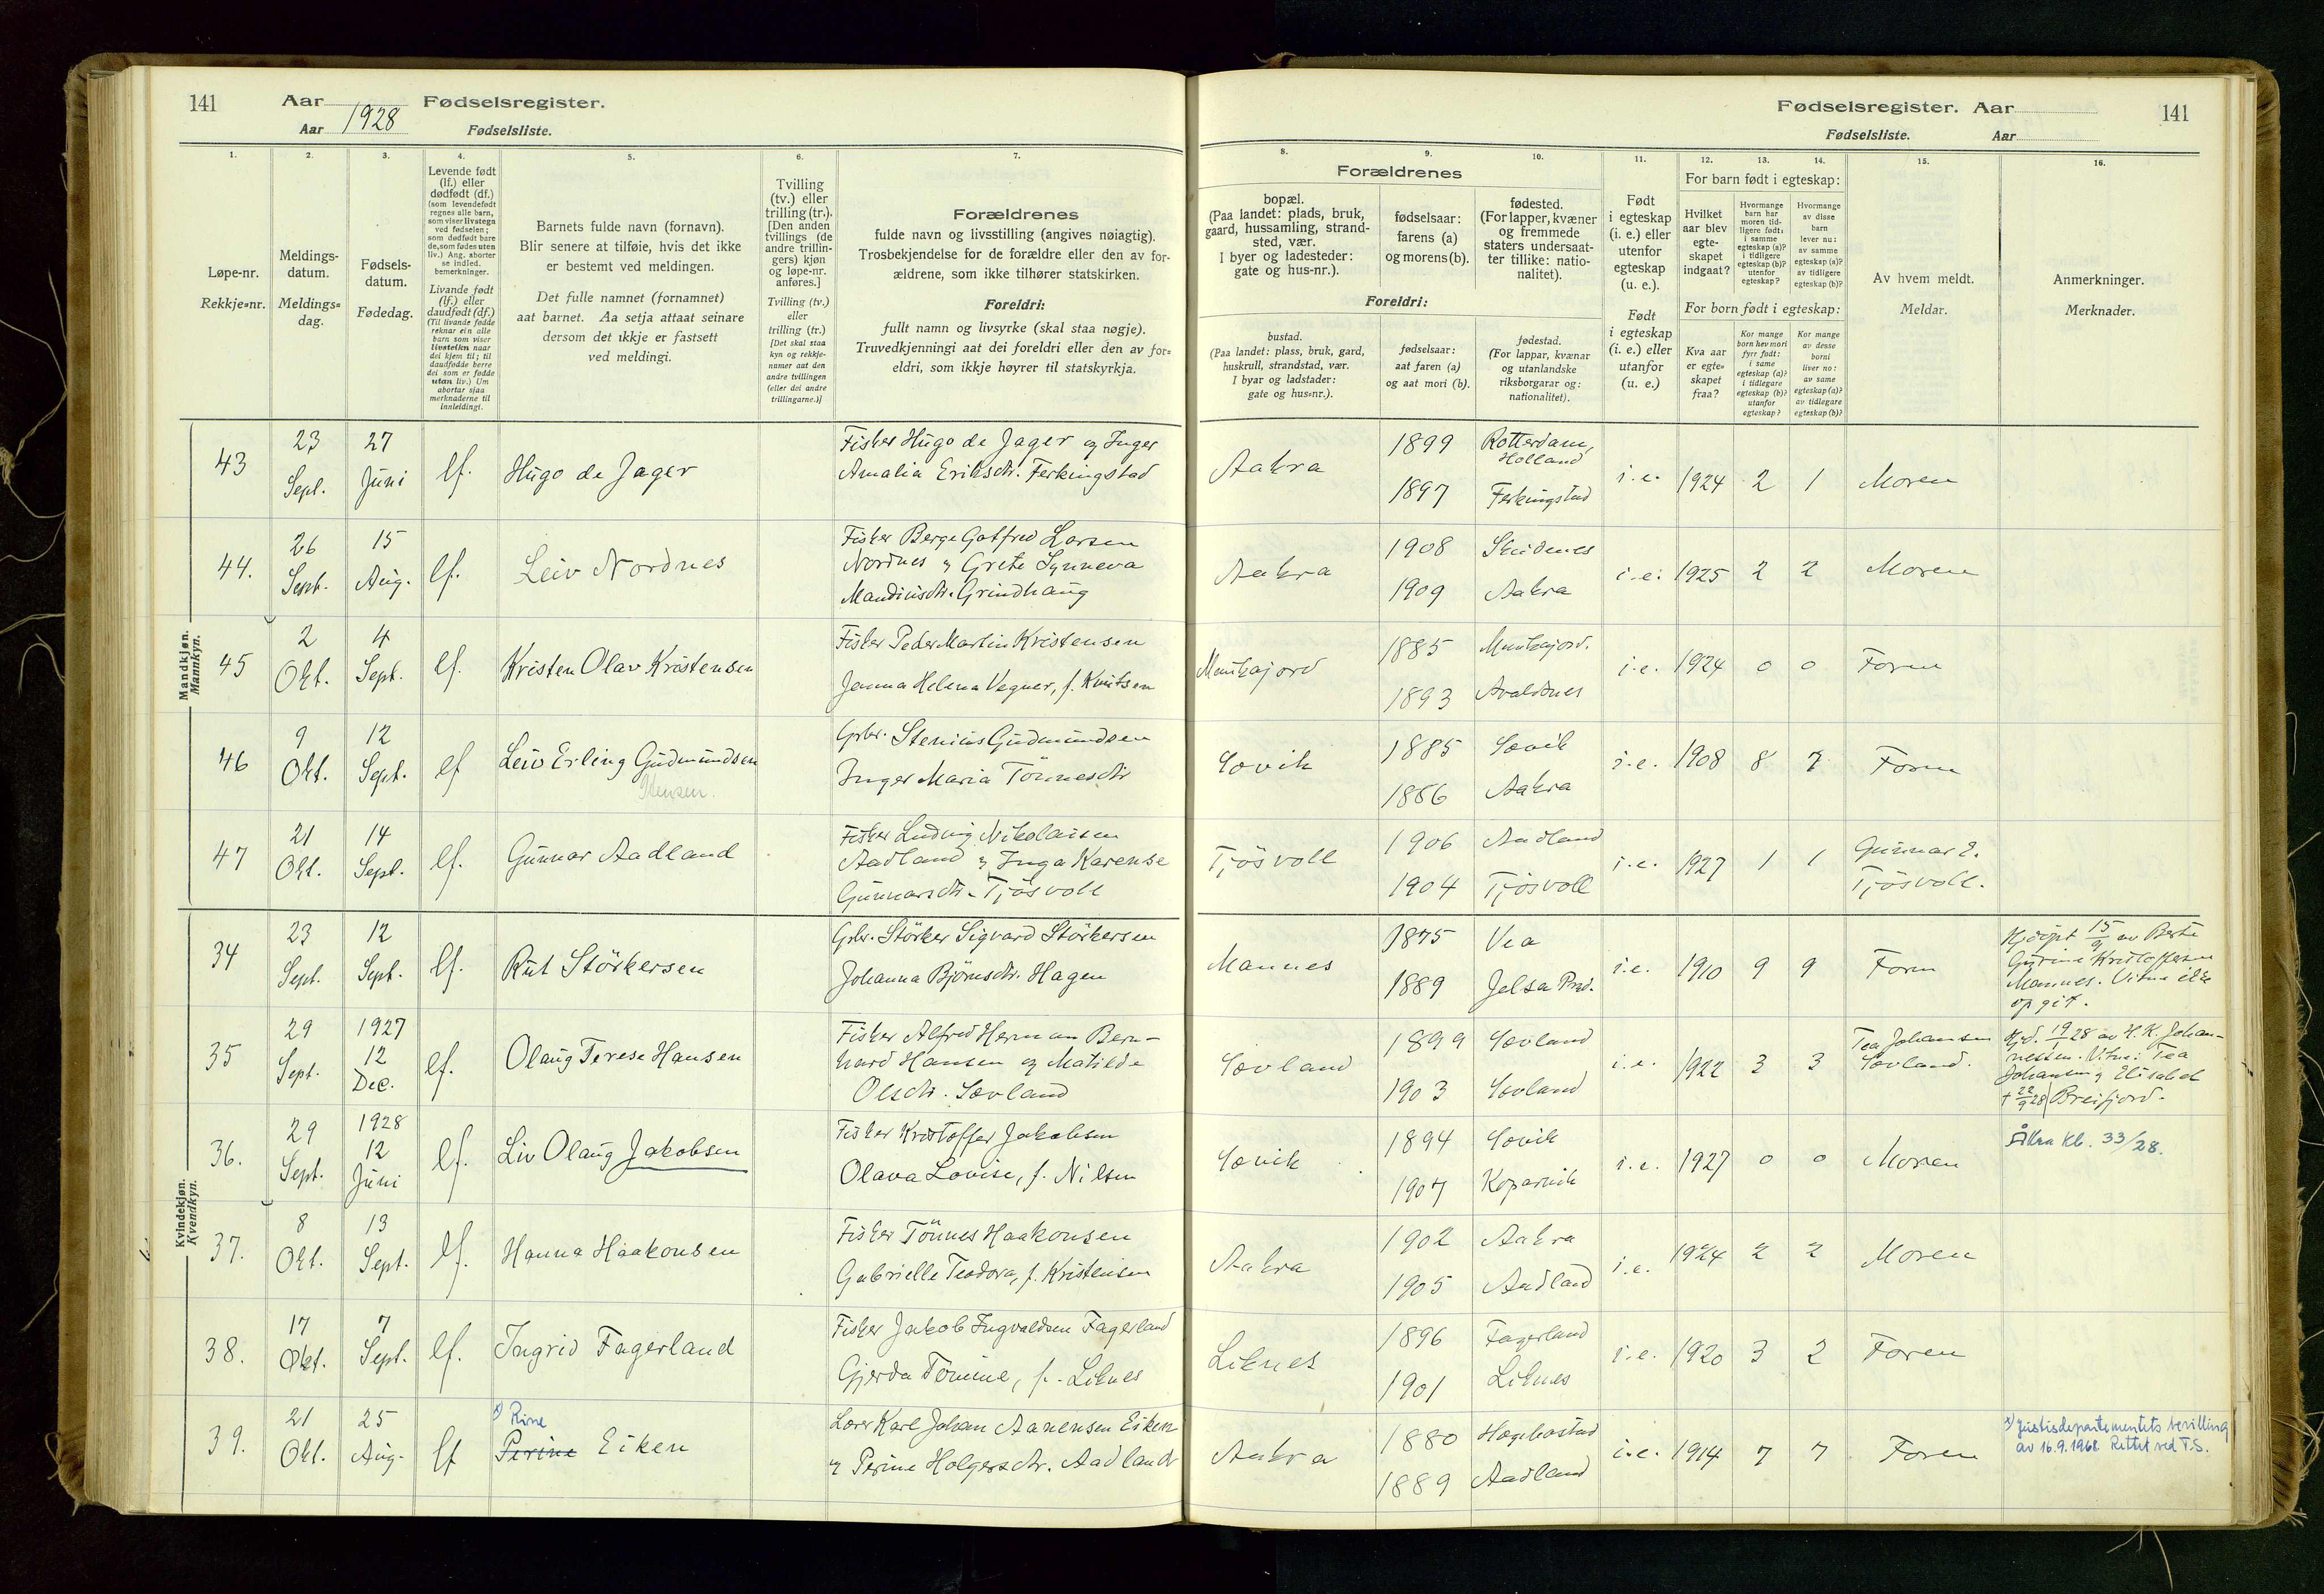 141 Aar 1928 Fødselsregister.
Aar Fødselsliste.
Fødselsregister. Aar 141
Fødselsliste. Aar
1. 2. 3. 4. 5. 6. 7.
8. 9. 10. 11. 12. 13. 14. 15. 16.
Løpe-nr.
Rekkje=nr.
Meldings-
datum.
Meldings=
dag.
Fødsels-
datum.
Fødedag.
Levende født
(lf.) eller
dødfødt (df.)
(som levendefødt
regnes alle barn,
som viser livstegn
ved fødselen;
som dødfødt bare
de, som fødes uten
liv.) Ang. aborter
se indled.
bemerkninger.
Livande født
(lf.) eller
daudfødt (df.)
(Til livande fødde
reknar ein alle
barn som viser
livsteikn naar
dei kjem til; til
daudfødde berre
dei som er fødde
utan liv.) Um
abortar sjaa
merknaderne til
innleidingi.
Barnets fulde navn (fornavn).
Blir senere at tilføie, hvis det ikke
er bestemt ved meldingen.
Det fulle namnet (fornamnet)
aat barnet. Aa setja attaat seinare
dersom det ikkje er fastsett
ved meldingi.
Tvilling
(tv.) eller
trilling (tr.).
[Den anden
tvillings (de
andre trillin-
gers) kjøn
og løpe-nr.
anføres.]
Tvilling (tv.)
eller
trilling (tr.)
[Det skal staa
kyn og rekkje-
numer aat den
andre tvillingen
(eller dei andre
trillingarne.)]
Forældrenes
fulde navn og livsstilling (angives nøiagtig).
Trosbekjendelse for de forældre eller den av for-
ældrene, som ikke tilhører statskirken.
Foreldri:
fullt namn og livsyrke (skal staa nøgje).
Truvedkjenningi aat dei foreldri eller den av for=
eldri, som ikkje høyrer til statskyrkja.
Forældrenes
bopæl.
(Paa landet: plads, bruk,
gaard, hussamling, strand-
sted, vær.
I byer og ladesteder:
gate og hus-nr.).
fødselsaar:
farens (a)
og morens (b).
fødested.
(For lapper, kvæner
og fremmede
staters undersaat-
ter tillike: natio-
nalitet).
Foreldri:
bustad.
(Paa landet: plass, bruk, gard,
huskrull, strandstad, vær.
I byar og ladstader:
gate og hus=nr.).
fødselsaar:
aat faren (a)
og aat mori (b).
fødestad.
(For lappar, kvænar
og utanlandske
riksborgarar og:
nationalitet).
Født
i egteskap
(i. e.) eller
utenfor
egteskap
(u. e.).
Født
i egteskap
(i. e.) eller
utanfor
(u. e.)
For barn født i egteskap:
Hvilket
aar blev
egte-
skapet
indgaat?
Hvormange
barn har
moren tid-
ligere født:
i samme
egteskap (a)?
i tidligere
egteskap (b)?
utenfor
egteskap?
Hvormange
av disse
barn
lever nu:
av samme
egteskap (a)?
av tidligere
egteskap (b)?
For born født i egteskap:
Kva aar
er egte=
skapet
fraa?
Kor mange
born hev mori
fyrr født:
i same
egteskap (a)?
i tidlegare
egteskap (b)?
utanfor
egteskap?
Kor mange
av desse
borni
liver no:
av same
egteskap (a)?
av tidlegare
egteskap (b)?
Av hvem meldt.
Meldar.
Anmerkninger.
Merknader.
Mandkjøn.
Mannkyn.
43 23 Sept. 27 Juni lf. Hugo de Jager
Fisker Hugo de Jager og Inger
Amalia Eriksdtr. Ferkingstad
Aakra 1899 Rotterdam, Holland
1897 Ferkingstad
i.e. 1924 2 1 Moren
44. 26 Sept. 15 Aug. lf. Leiv Nordnes
Fisker Berge Gotfred Larsen
Nordnes og Grete Synneva
Mandiusdtr. Grindhaug
Aakra 1908 Skudenes
1909 Aakra
i.e. 1925 2 2 Moren
45 2 Okt. 4 Sept. lf. Kristen Olav Kristensen
Fisker Peder Martin Kristensen
Janna Helena Vegner, f. Knutsen
Munkajord 1885 Munkajord.
1893 Avaldsnes
i.e. 1924 0 0 Faren
46 9 Okt. 12 Sept. lf Leiv Erling Gudmundsen
Stensen.
Gbr. Stenius Gudmundsen
Inger Maria Tönnesdtr
Sævik 1885 Sævik
1886 Aakra
i.e. 1908 8 7 Faren
47 21 Okt. 14 Sept. lf. Gunnar Aadland
Fisker Ludvig Nikolaisen
Aadland og Inga Karense
Gunnarsdtr. Tjösvoll
Tjösvoll 1906 Aadland
1904 Tjösvoll
i.e. 1927 1 1 Gunnar E.
Tjösvoll.
Kvindekjøn.
Kvendkyn.
34 23 Sept. 12 Sept. lf. Rut Störkersen
Gbr. Störker Sigvard Störkersen
Johanna Björnsdtr. Hagen
Mannes 1875 Vea
1889 Jelsa Pred.
i.e. 1910 9 9 Faren
Hjdöpt 15/9 av Berte
Gurine Kristoffersen
Mannes. Vitne ikke
opgit.
35 29 Sept. 1927 12 Dec. lf. Olaug Terese Hansen
Fisker Alfred Herman Bern-
hard Hansen og Matilde
Olsdtr. Sævland
Sævland 1899 Sævland
1903 Sævland
i.e. 1922 3 3 Tea Johansen
Sævland.
Hjd. 19/1 28 av H.K. Johan-
nessen. Vitne: Tea
Johansen og Elisabet
† 22/9 28 Breifjord.
36. 29 Sept. 1928 12 Juni lf. Liv Olaug Jakobsen
Fisker Kristoffer Jakobsen
Olava Lovise, f. Nilsen
Sævik 1894 Sævik
1907 Kopervik
i.e. 1927 0 0 Moren
Åkra kb. 33/28.
37. 8 Okt. 13 Sept. lf. Hanna Haakonsen
Fisker Tönnes Haakonsen
Gabrielle Teodora, f. Kristensen
Aakra 1902 Aakra
1905 Aadland
i.e. 1924 2 2 Moren
38. 17 Okt. 7 Sept. lf. Ingrid Fagerland
Fisker Jakob Ingvaldsen Fagerland
Gjerda Tomine, f. Liknes
Liknes 1896 Fagerland
1901 Liknes
i.e. 1920 3 2 Faren
39. 21 Okt. 25 Aug. lf x) Rine
Perine Eiken
Lærer Karl Johan Aanensen Eiken
og Perine Holgersdtr. Aadland
Aakra 1880 Hægebostad
1889 Aadland
i.e. 1914 7 7 Faren
x) Justisdepartementets bevilling
av 16.9.1968. Rettet ved T.S.